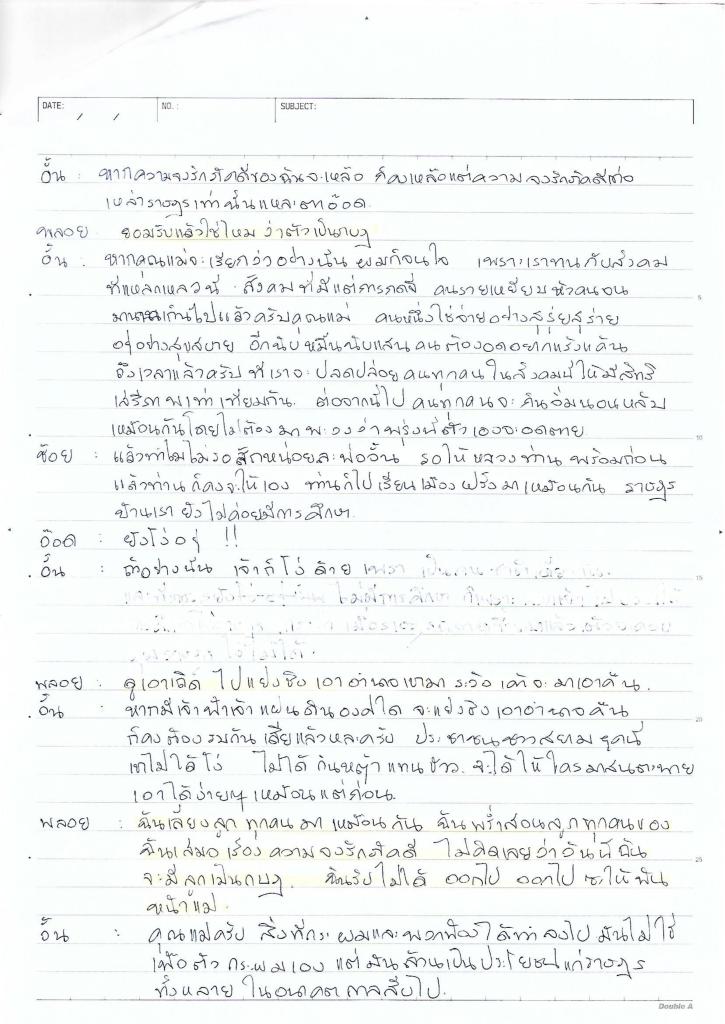 DATE: / / NO.: SUBJECT:
อั้น : หากความจงรักภักดีของฉันจะเหลือ ก็คงเหลือแต่ความจงรักภักดีต่อ
เหล่าราษฎรเท่านั้นแหละตาอ๊อด
พลอย : ยอมรับแล้วใช่ไหม ว่าตัวเป็นกบฏ
อั้น : หากคุณแม่จะเรียกว่าอย่างนั้น ผมก็จนใจ เพราะเราทนกับสังคม
ที่แหลกเหลวนี้ สังคมที่มีแต่การกดขี่ คนรวยเหยียบหัวคนจน
5
มานานเกินไปแล้วครับคุณแม่ คนหนึ่งใช้จ่ายอย่างสุรุ่ยสุร่าย
อยู่อย่างสุขสบาย อีกนับหมื่นนับแสนคนต้องอดอยากแร้งแค้น
ถึงเวลาแล้วครับ ที่เราจะปลดปล่อยคนทุกคนในสังคมนี้ให้มีสิทธิ
เสรีภาพเท่าเทียมกัน ต่อจากนี้ไป คนทุกคนจะกินอิ่มนอนหลับ
เหมือนกันโดยไม่ต้องมาพะวงว่าพรุ่งนี้ตัวเองจะอดตาย
10
ช้อย : แล้วทำไมไม่รอสักหน่อยละพ่ออั้น รอให้หลวงท่านพร้อมก่อน
แล้วท่านก็คงจะให้เอง ท่านก็ไปเรียนเมืองฝรั่งมาเหมือนกัน ราษฎร
บ้านเรายังไม่ค่อยมีการศึกษา
อ๊อด : ยังโง่อยู่ !!
อั้น : ถ้าอย่างนั้น เจ้าก็โง่ด้วย
15
ไม่มีการศึกษา
พลอย : ดูเอาเถิด ไปแย่งชิงเอาอำนาจเขามา ระวังเค้าจะมาเอาคืน.
อั้น : หากมีเจ้าฟ้าเจ้าแผ่นดินองค์ใด จะแย่งชิงเอาอำนาจคืน
20
ก็คงต้องรบกันเสียแล้วหละครับ ประชาชนชาวสยามยุคนี้
เขาไม่ได้โง่ ไม่ได้กินหญ้าแทนข้าว จะได้ให้ใครมาสนตะพาย
เอาได้ง่ายๆเหมือนแต่ก่อน
พลอย : ฉันเลี้ยงลูกทุกคนมาเหมือนกัน ฉันพร่ำสอนลูกทุกคนของ
ฉันเสมอ เรื่องความจงรักภักดี ไม่คิดเลยว่าวันนี้ฉัน
25
จะมีลูกเป็นกบฏ. ฉันรับไม่ได้ ออกไป ออกไปซะให้พ้น
หน้าแม่.
อั้น : คุณแม่ครับ สิ่งที่กระผมและพวกพ้องได้ทำลงไป มันไม่ใช่
เพื่อตัวกระผมเอง แต่มันล้วนเป็นประโยชน์แก่ราษฎร
ทั้งหลาย ในอนาคตกาลสืบไป.
Double A